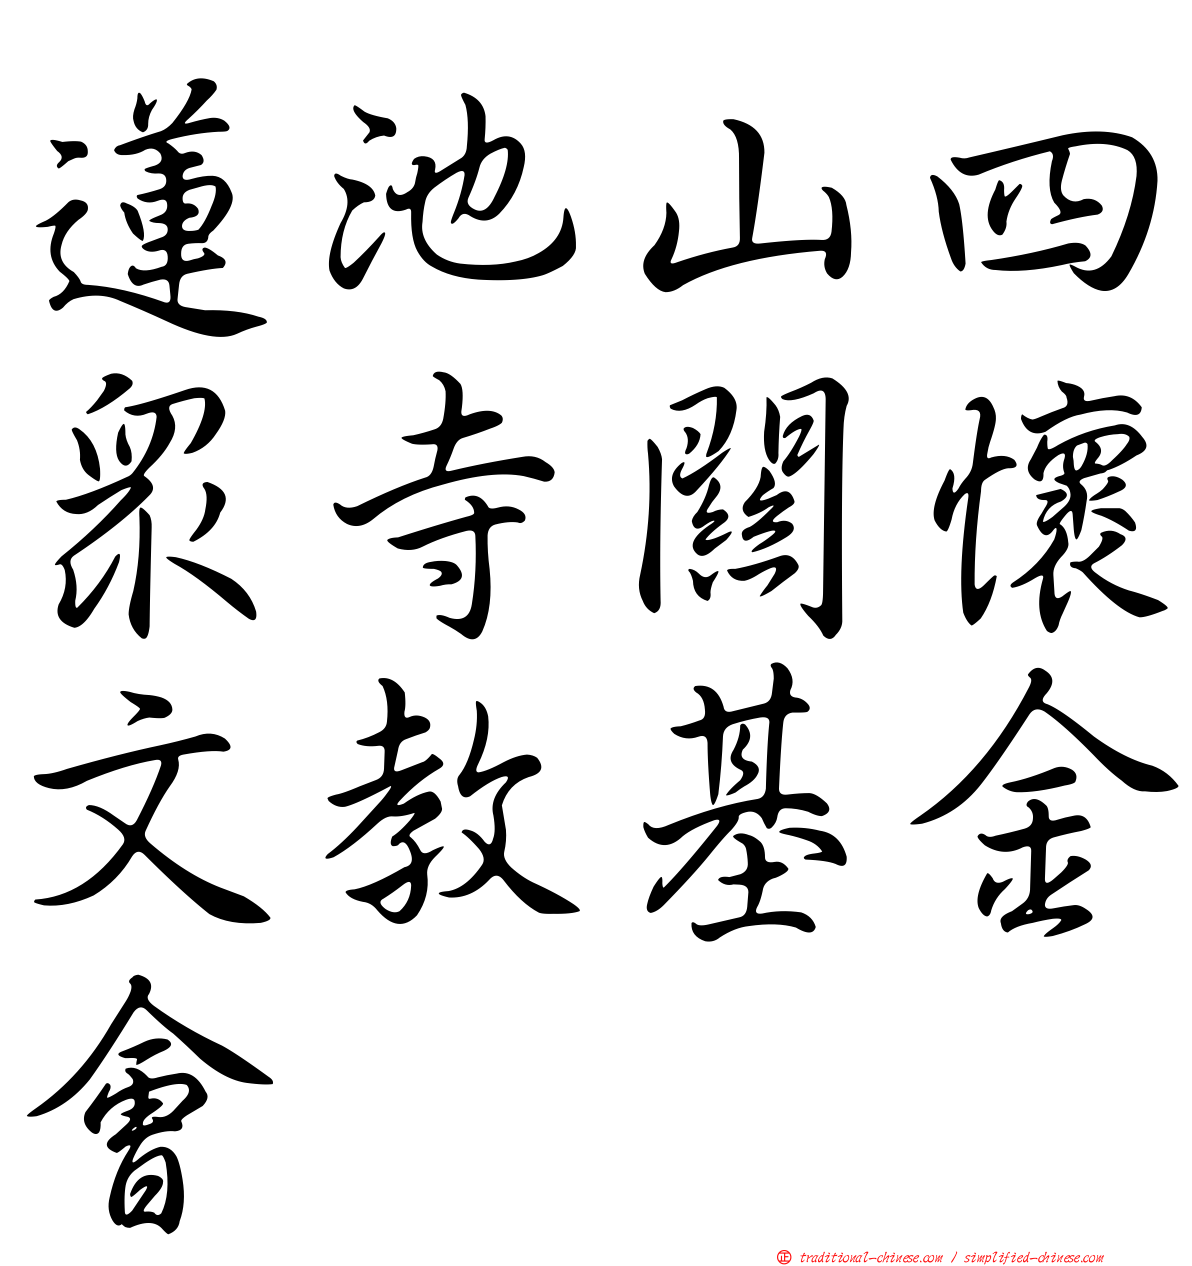 蓮池山四
眾寺關懷
文教基金
會
正 traditional-chinese.com / simplified-chinese.com